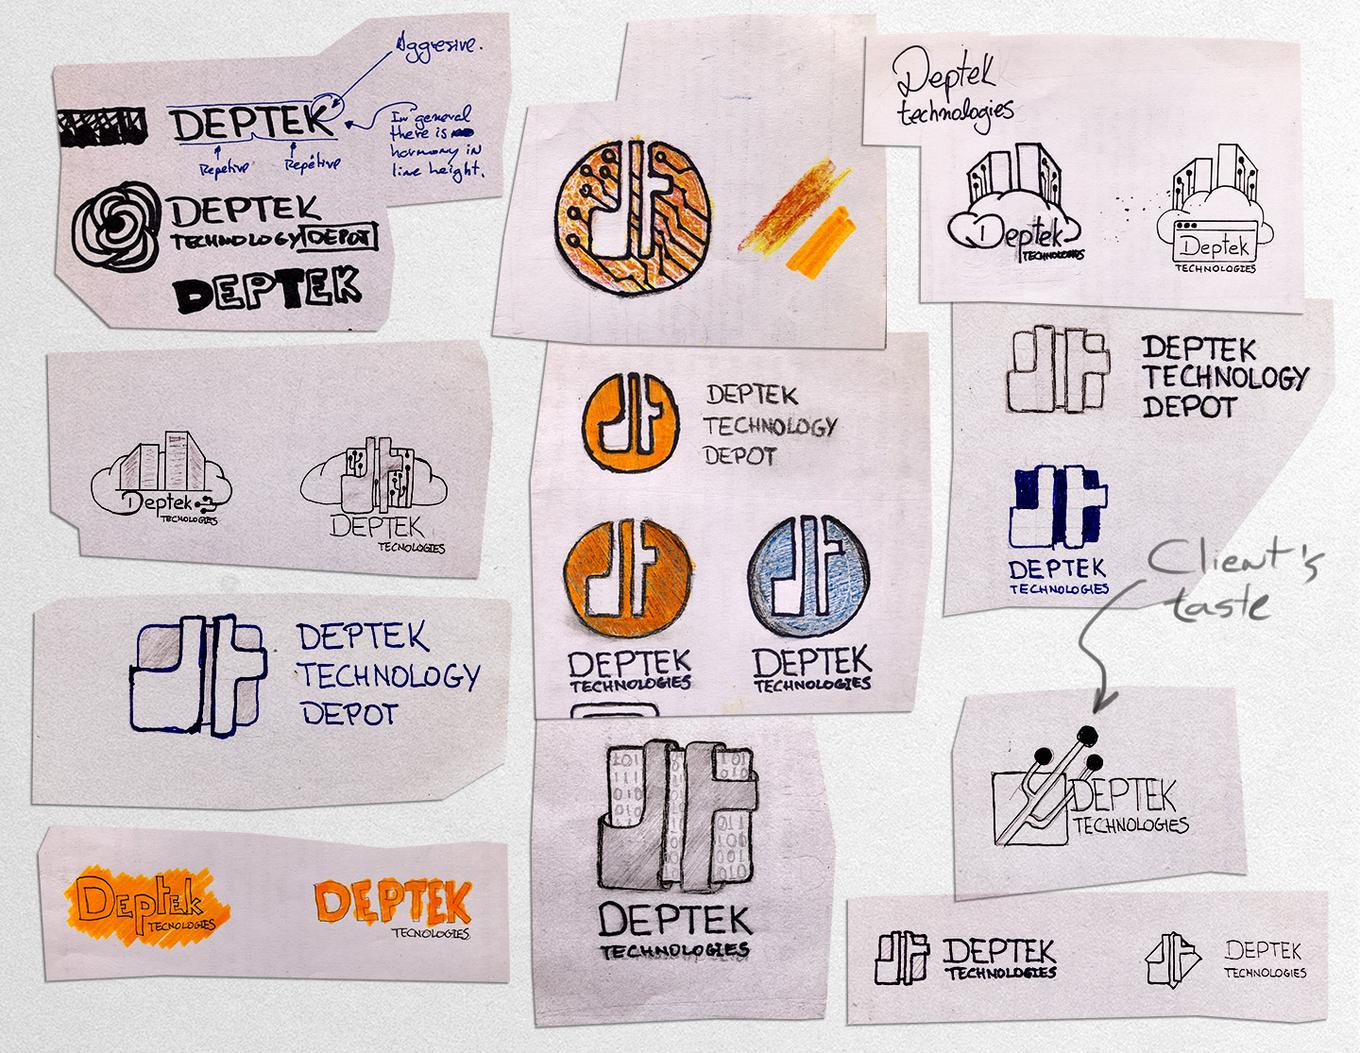 Aggresive.
DEPTEK
Repetive
Repetive
In general
there is
harmony in
line height.
DEPTEK
TECHNOLOGY DEPOT
DEPTEK
Deptek
technologies
Deptek
TECHNOLOGIES
Deptek
TECHNOLOGIES
DEPTEK
TECHNOLOGY
DEPOT
DEPTEK
TECHNOLOGY
DEPOT
Deptek
TECNOLOGIES
DEPTEK
TECNOLOGIES
DEPTEK
TECHNOLOGIES
Client's
taste
DEPTEK
TECHNOLOGY
DEPOT
DEPTEK
TECHNOLOGIES
DEPTEK
TECHNOLOGIES
DEPTEK
TECHNOLOGIES
Deptek
TECNOLOGIES
DEPTEK
TECNOLOGIES
DEPTEK
TECHNOLOGIES
DEPTEK
TECHNOLOGIES
DEPTEK
TECHNOLOGIES